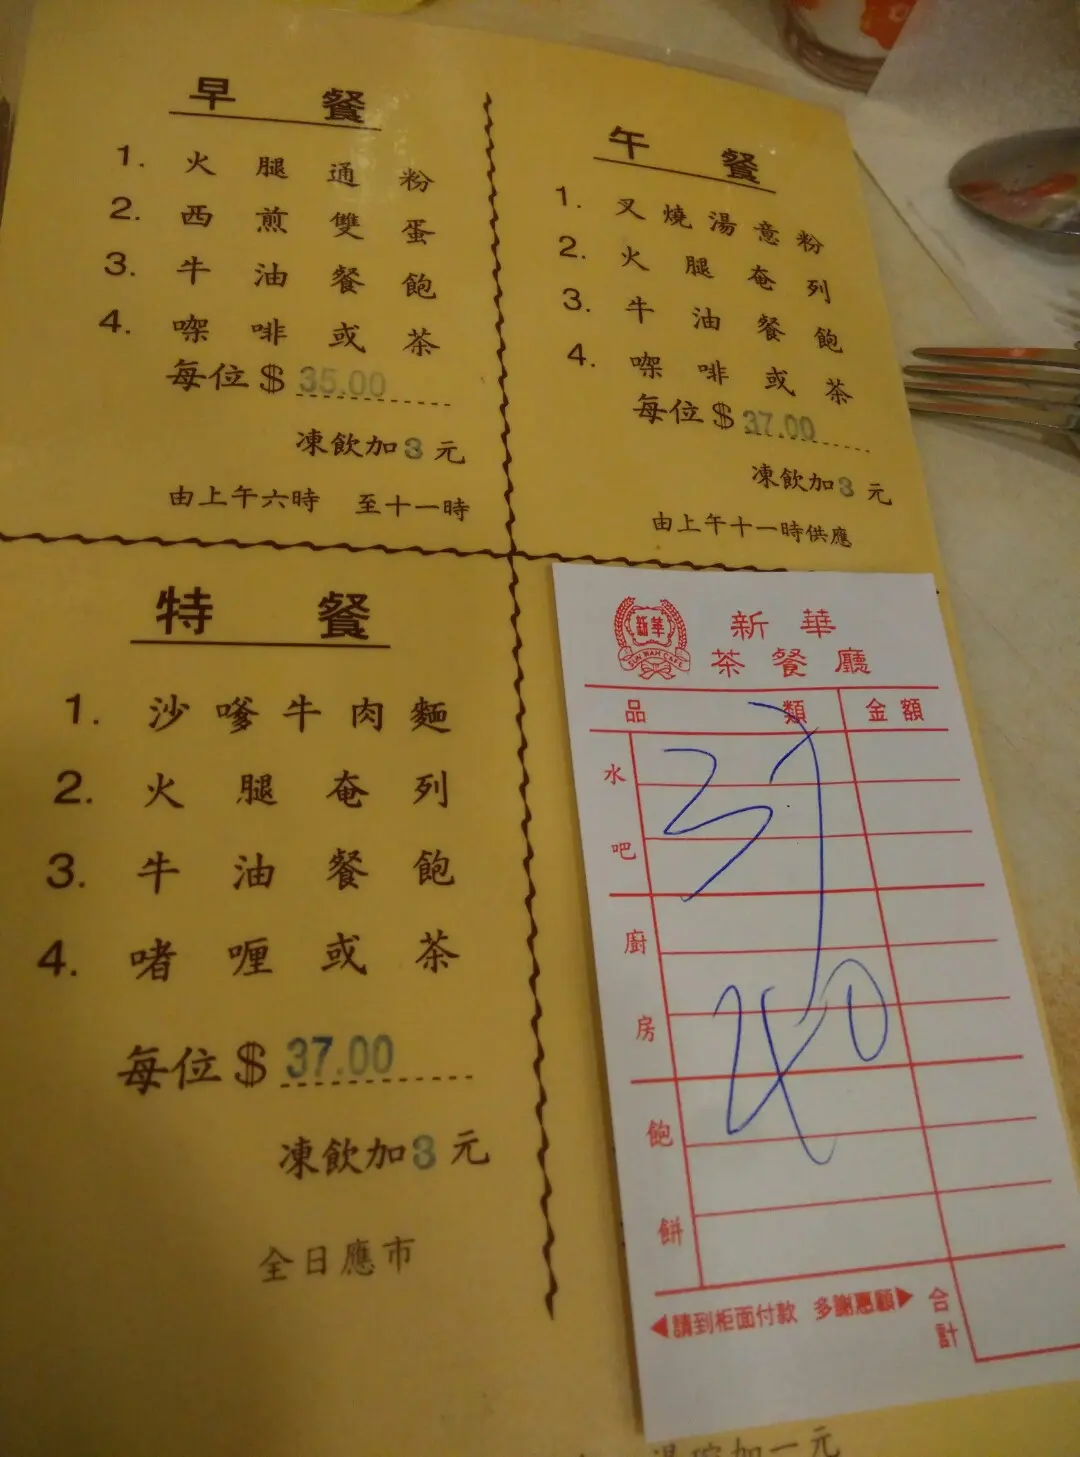 早餐
1. 火腿通粉
2. 西煎雙蛋
3. 牛油餐飽
4. 㗎啡或茶
每位$35.00
凍飲加3元
由上午六時 至十一時
午餐
1. 叉燒湯意粉
2. 火腿奄列
3. 牛油餐飽
4. 㗎啡或茶
每位$37.00
凍飲加3元
由上午十一時供應
特餐
1. 沙嗲牛肉麵
2. 火腿奄列
3. 牛油餐飽
4. 啫喱或茶
每位$37.00
凍飲加3元
全日應市
新華
SUN WAH CAFE
新華
茶餐廳
品類 金額
水吧
廚房
飽餅
40
請到柜面付款 多謝惠顧
合計
加一元